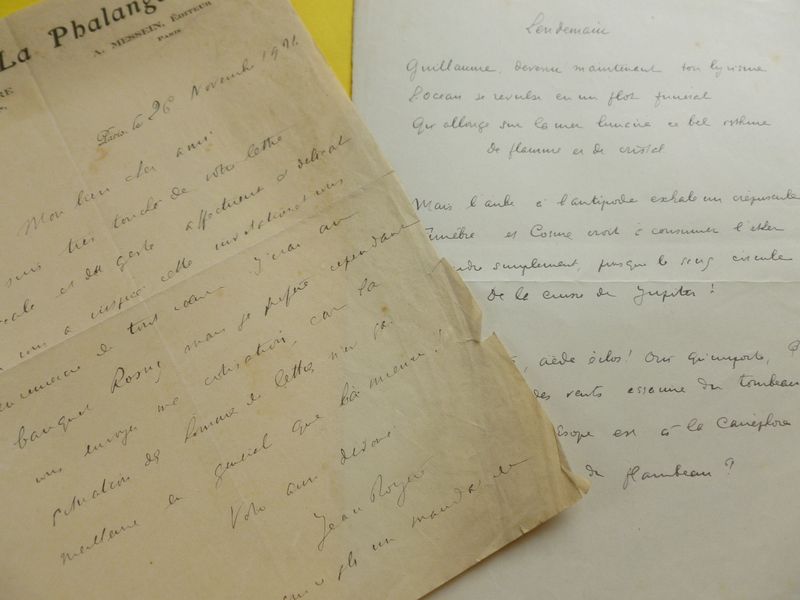 La Phalange
A. MESSEIN, ÉDITEUR
PARIS
Paris le 26 Novembre
Mon bien cher ami
suis très touché de votre lettre
et du geste affectueux et délicat
vous a inspiré cette invitation et vous
de tout cœur. J'irai au
banquet Rosny mais je préfère cependant
vous envoyer ma cotisation, car la
situation des hommes de lettres n'est pas
meilleure en général que la mienne!
Votre ami dévoué
Jean Royère
un mandat de
Lendemain
Guillaume, devenu maintenant ton lyrisme
L'Océan se révulse en un flot funéral
Qui allonge sur la mer lunaire ce bel isthme
De flamme et de cristal
Mais l'aube à l'antipode exhale un crépuscule
Funèbre et Cosme croit à consumer l'éther
simplement, puisque le sang circule
De la cuisse de Jupiter!
aède éclos! Oui qu'importe,
des vents essaime du tombeau
est à la Canéphore
du flambeau?